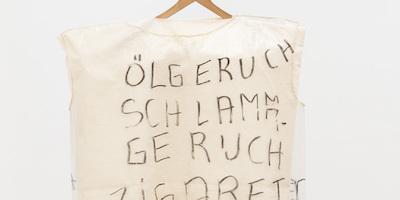 ÖLGERUCH
SCHLAMM-
GERUCH
ZIGARET